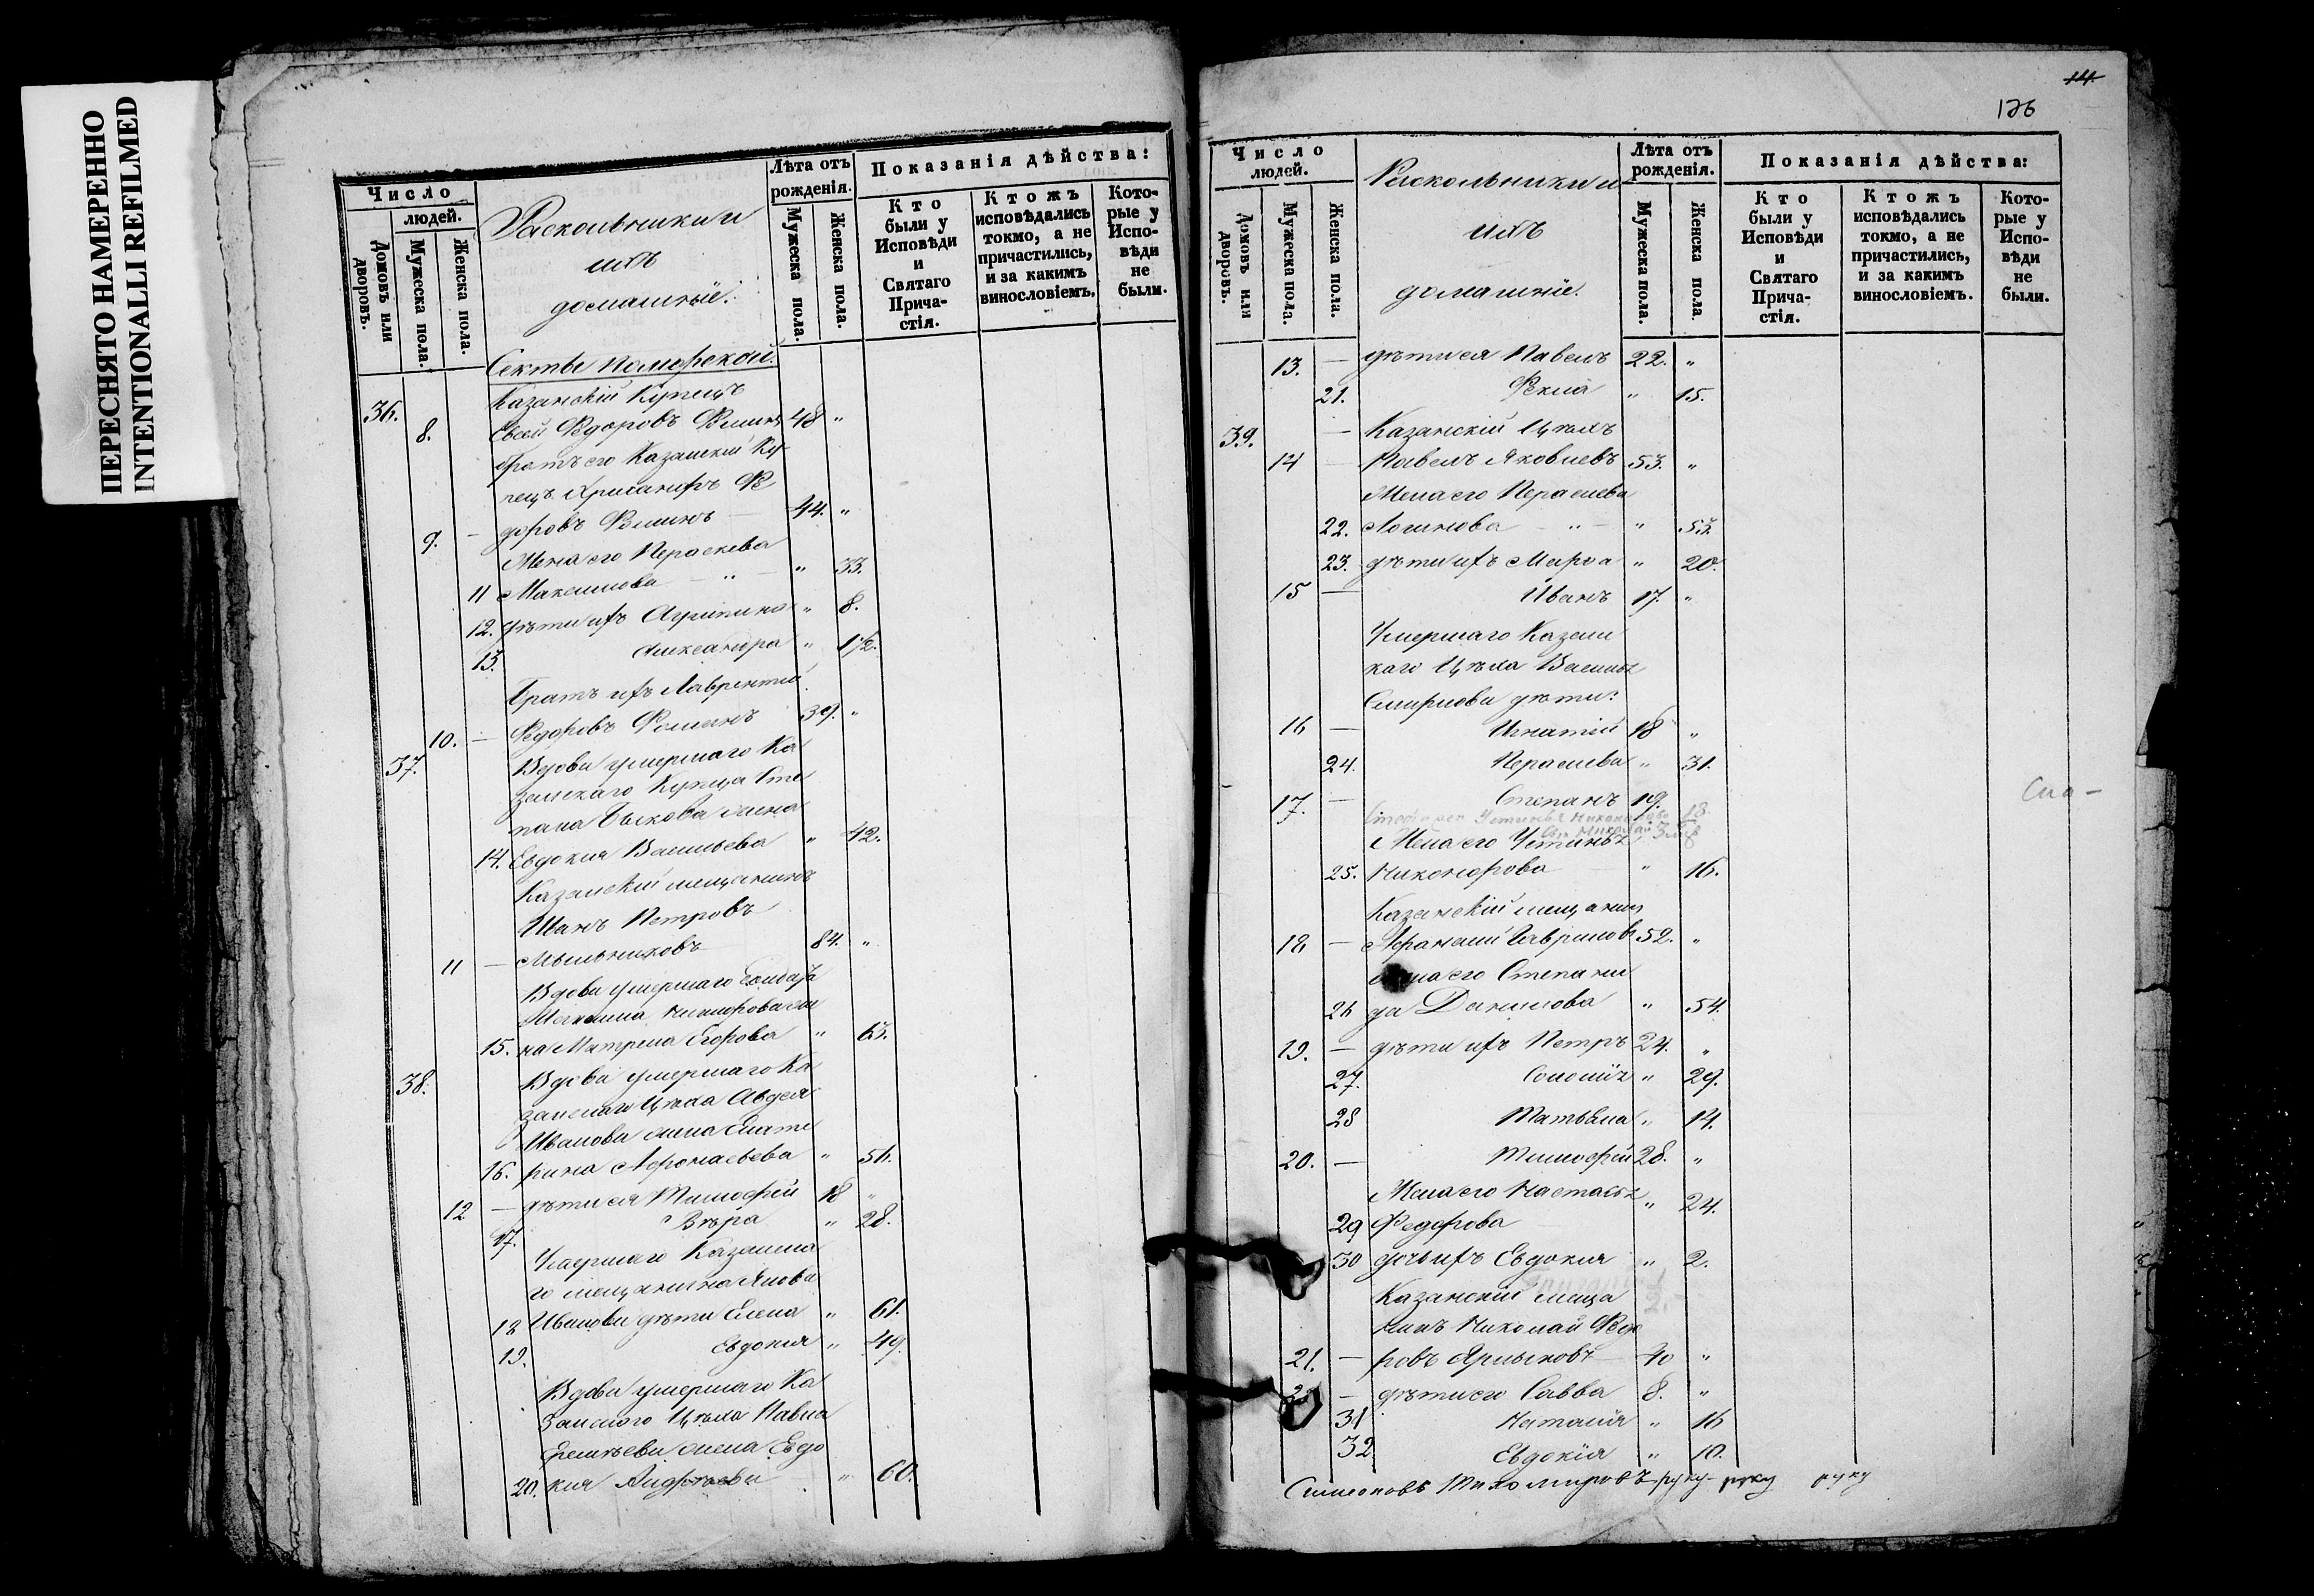 ПЕРЕСНЯТО НАМЕРЕННО
INTENTIONALLI REFILMED
Число
людей.
Домовъ или дворовъ.
Мужеска пола.
Женска пола.
Раскольники и
ихъ
домашніе.
Лѣта отъ рожденія.
Мужеска пола.
Женска пола.
Показанія дѣйства:
Кто были у Исповѣди и Святаго Прича-стія.
Ктожъ исповѣдались токмо, а не причастились, и за какимъ винословіемъ.
Кото-рые у Испо-вѣди не были.
Секты Поморской.
36. Казанскій Купецъ
8. Евсей Ѳедоровъ Ѳоминъ 48 "
братъ его Казанскій Ку-
пецъ Хрисанфъ Ѳе
9. — доровъ Ѳоминъ 44. "
Жена его Параскева
11 Максимова " " 33.
12. дѣти ихъ Агрипина " 8.
13. Александра " 1/2.
Братъ ихъ Лаврентій
10. — Ѳедоровъ Ѳоминъ 39. "
37. Вдова умершаго Ка
занскаго Купца Сте
пана Быкова жена
14. Евдокия Васильева " 42.
Казанскій мещанинъ
Иванъ Петровъ
11 — Мыльниковъ 84. "
Вдова умершаго
15. на Матрена Егорова " 63.
38. Вдова умершаго Ка
занскаго Цѣха Авдея
Иванова жена Екате
16. рина Афонасьева " 56.
12 — дѣти ея Тимофей 18 "
17. Вѣра " 28.
Умершаго Казанска
го мещанина Якова
18 Иванова дѣти Елена " 61.
19. Евдокия " 49.
Вдова умершаго Ка
занскаго Цѣха Павла
Еремѣева жена Евдо
20. кия " 60.
14.
126
Число
людей.
Домовъ или дворовъ.
Мужеска пола.
Женска пола.
Раскольники и
ихъ
домашніе.
Лѣта отъ рожденія.
Мужеска пола.
Женска пола
Показанія дѣйства:
Кто были у Исповѣди и Святаго Прича-стія.
Ктожъ исповѣдались токмо, а не причастились, и за какимъ винословіемъ.
Кото-рые у Испо-вѣди не были.
13. — дѣти ея Павелъ 22. "
21. Ѳекла " 15.
39. — Казанскій Цѣхъ
14 — Павелъ Яковлевъ 53. "
Жена его Параскева
22. Логинова " " 53.
23. дѣти ихъ Марѳа " 20.
15 — Иванъ 17. "
Умершаго Казанс
каго Цѣха Василья
Смирнова дѣти:
16 — Игнатій 18 "
24. Параскева " 31.
17. — Степанъ 19.
18.
Жена его Устинья
25. Никонорова " 16.
Казанскій мещанинъ
18 — Афанасій Гавриловъ 52. "
жена его Степани
26 да Данилова " 54.
19. — дѣти ихъ Петръ 24. "
27. Соломія " 29.
28 Татьяна " 14.
20. — Тимофей 28. "
Жена его Настасья " 24.
29 Ѳедорова
30 дочь ихъ Евдокия " 2.
Казанскій меща
нинъ Николай Ѳедо
21. — ровъ Ярлыковъ 40 "
22 — дѣти его Савва 8. "
31 Наталія " 16
32 Евдокія " 10.
Симеоновъ Тихомировъ руку руку руку